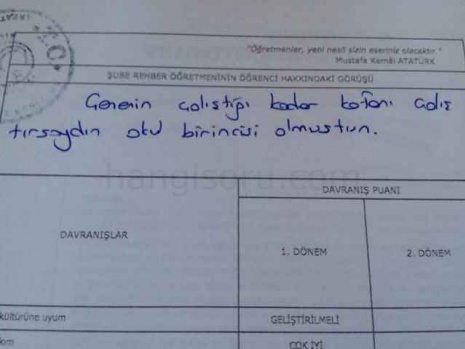 "Öğretmenler, yeni nesil sizin eseriniz olacaktır."
Mustafa Kemâl ATATÜRK
ŞUBE REHBER ÖĞRETMENİNİN ÖĞRENCİ HAKKINDAKİ GÖRÜŞÜ
Çenenin çalıştığı kadar kafanı çalış
tırsaydın okul birincisi olmuştun.
hangisoru.com
DAVRANIŞ PUANI
DAVRANIŞLAR
1. DÖNEM
2. DÖNEM
kültürüne uyum
GELİŞTİRİLMELİ
ÇOK İYİ